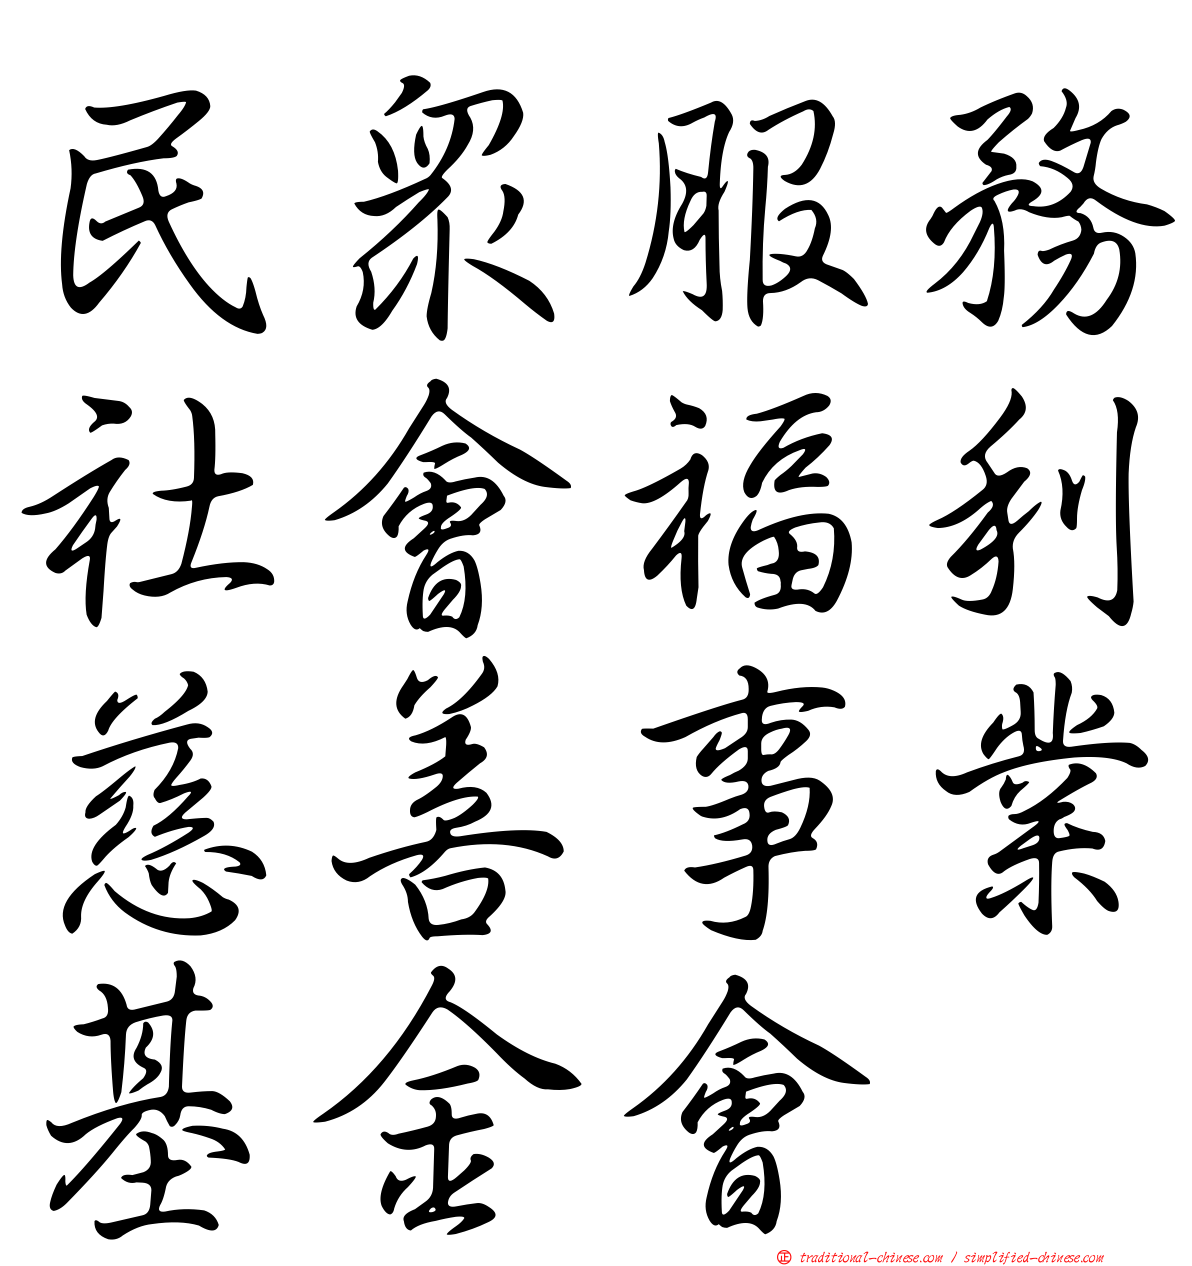 民眾服務
社會福利
慈善事業
基金會
正 traditional-chinese.com / simplified-chinese.com